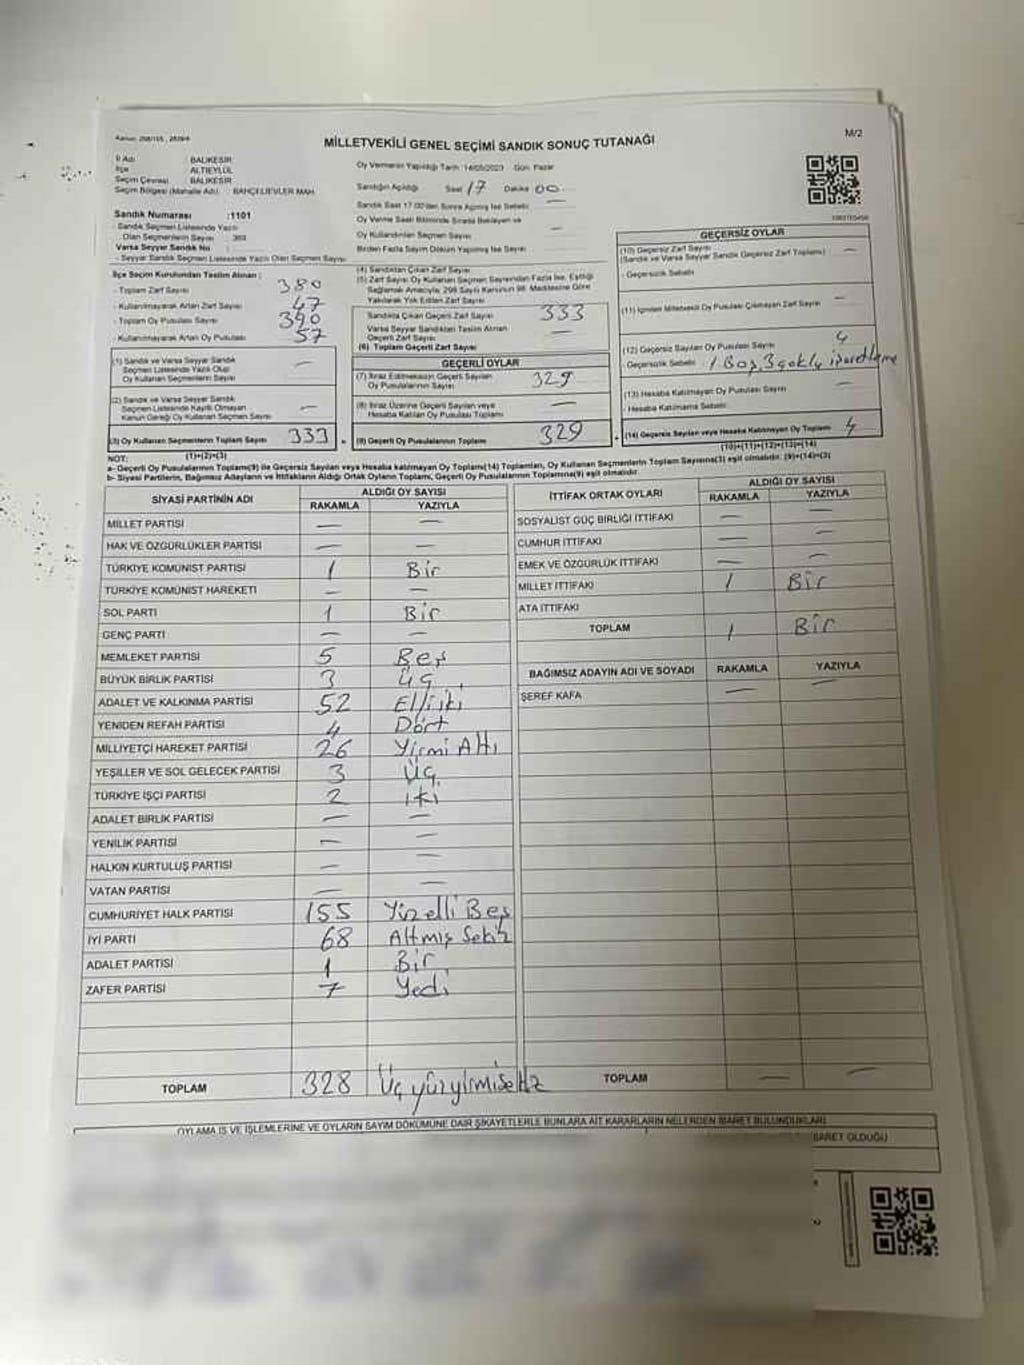 MİLLETVEKİLİ GENEL SEÇİMİ SANDIK SONUÇ TUTANAĞI
M/2
İl Adı : BALIKESİR
İlçe : ALTIEYLÜL
Seçim Çevresi : BALIKESİR
Seçim Bölgesi (Mahalle Adı) : BAHÇELİEVLER MAH.
Oy Vermenin Yapıldığı Tarih :14/05/2023 Gün: Pazar
Sandığın Açıldığı Saat 17 Dakika 00
Sandık Saat 17.00'den Sonra Açılmış İse Sebebi: —
Oy Verme Saati Bitiminde Sırada Bekleyen ve
Oy Kullandırılan Seçmen Sayısı —
Birden Fazla Sayım Döküm Yapılmış İse Sayısı:
Sandık Numarası :1101
- Sandık Seçmen Listesinde Yazılı
Olan Seçmenlerin Sayısı :
Varsa Seyyar Sandık No :
- Seyyar Sandık Seçmen Listesinde Yazılı Olan Seçmen Sayısı:
İlçe Seçim Kurulundan Teslim Alınan ;
- Toplam Zarf Sayısı 380
- Kullanılmayarak Artan Zarf Sayısı 47
- Toplam Oy Pusulası Sayısı 390
- Kullanılmayarak Artan Oy Pusulası 57
(1) Sandık ve Varsa Seyyar Sandık
Seçmen Listesinde Yazılı Olup
Oy Kullanan Seçmenlerin Sayısı —
(2) Sandık ve Varsa Seyyar Sandık
Seçmen Listesinde Kayıtlı Olmayan
Kanun Gereği Oy Kullanan Seçmen Sayısı —
(3) Oy Kullanan Seçmenlerin Toplam Sayısı 333
(1)+(2)=(3)
(4) Sandıktan Çıkan Zarf Sayısı
(5) Zarf Sayısı Oy Kullanan Seçmen Sayısından Fazla İse, Eşitliği
Sağlamak Amacıyla; 298 Sayılı Kanunun 98. Maddesine Göre
Yakılarak Yok Edilen Zarf Sayısı
Sandıkta Çıkan Geçerli Zarf Sayısı 333
Varsa Seyyar Sandıktan Teslim Alınan
Geçerli Zarf Sayısı —
(6) Toplam Geçerli Zarf Sayısı
GEÇERLİ OYLAR
(7) İtiraz Edilmeksizin Geçerli Sayılan
Oy Pusulalarının Sayısı 329
(8) İtiraz Üzerine Geçerli Sayılan veya
Hesaba Katılan Oy Pusulaları Toplamı —
(9) Geçerli Oy Pusulalarının Toplamı 329
GEÇERSİZ OYLAR
(10) Geçersiz Zarf Sayısı
(Sandık ve Varsa Seyyar Sandık Geçersiz Zarf Toplamı) —
- Geçersizlik Sebebi :
(11) İçinden Milletvekili Oy Pusulası Çıkmayan Zarf Sayısı —
(12) Geçersiz Sayılan Oy Pusulası Sayısı 4
- Geçersizlik Sebebi : 1 Boş 3 çoklu işaretleme
(13) Hesaba Katılmayan Oy Pusulası Sayısı —
- Hesaba Katılmama Sebebi:
(14) Geçersiz Sayılan veya Hesaba Katılmayan Oy Toplamı 4
(10)+(11)+(12)+(13)=(14)
NOT:
a- Geçerli Oy Pusulaları Toplamı(9) ile Geçersiz Sayılan veya Hesaba katılmayan Oy Toplamı(14) Toplamları, Oy Kullanan Seçmenlerin Toplam Sayısına(3) eşit olmalıdır. (9)+(14)=(3)
b- Siyasi Partilerin, Bağımsız Adayların ve İttifakların Aldığı Ortak Oyların Toplamı, Geçerli Oy Pusulalarının Toplamına(9) eşit olmalıdır.
SİYASİ PARTİNİN ADI ALDIĞI OY SAYISI
RAKAMLA YAZIYLA
MİLLET PARTİSİ — —
HAK VE ÖZGÜRLÜKLER PARTİSİ — —
TÜRKİYE KOMÜNİST PARTİSİ 1 Bir
TÜRKİYE KOMÜNİST HAREKETİ — —
SOL PARTİ 1 Bir
GENÇ PARTİ — —
MEMLEKET PARTİSİ 5 Beş
BÜYÜK BİRLİK PARTİSİ 3 Üç
ADALET VE KALKINMA PARTİSİ 52 Elliiki
YENİDEN REFAH PARTİSİ 4 Dört
MİLLİYETÇİ HAREKET PARTİSİ 26 Yirmi Altı
YEŞİLLER VE SOL GELECEK PARTİSİ 3 Üç
TÜRKİYE İŞÇİ PARTİSİ 2 iki
ADALET BİRLİK PARTİSİ — —
YENİLİK PARTİSİ — —
HALKIN KURTULUŞ PARTİSİ — —
VATAN PARTİSİ — —
CUMHURİYET HALK PARTİSİ 155 Yüzelli Beş
İYİ PARTİ 68 Altmış Sekiz
ADALET PARTİSİ 1 Bir
ZAFER PARTİSİ 7 Yedi
TOPLAM 328 Üç yüzyirmiSekiz
İTTİFAK ORTAK OYLARI ALDIĞI OY SAYISI
RAKAMLA YAZIYLA
SOSYALİST GÜÇ BİRLİĞİ İTTİFAKI — —
CUMHUR İTTİFAKI — —
EMEK VE ÖZGÜRLÜK İTTİFAKI — —
MİLLET İTTİFAKI 1 Bir
ATA İTTİFAKI
TOPLAM 1 Bir
BAĞIMSIZ ADAYIN ADI VE SOYADI RAKAMLA YAZIYLA
ŞEREF KAFA — —
TOPLAM — —
OYLAMA İŞ VE İŞLEMLERİNE VE OYLARIN SAYIM DÖKÜMÜNE DAİR ŞİKAYETLERLE BUNLARA AİT KARARLARIN NELERDEN İBARET BULUNDUKLARI
İBARET OLDUĞU